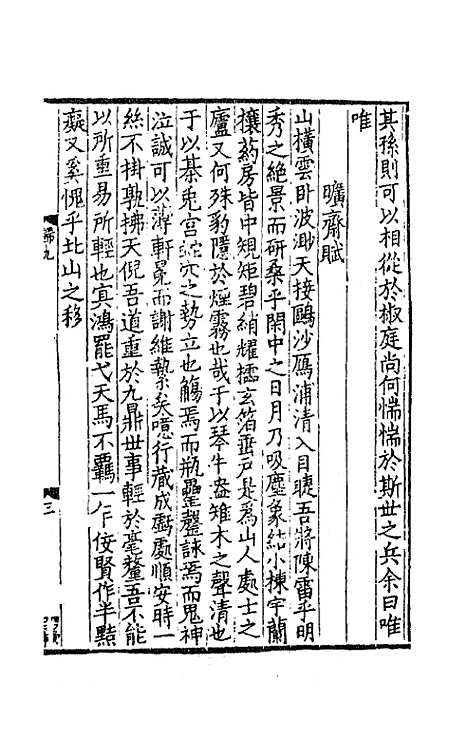 其孫則可以相從於椒庭尚何惴惴於斯世之兵余曰唯
唯
曠齋賦
山橫雲卧波渺天接鷗沙鴈浦清入目睫吾將陳雷乎明
秀之絶景而研桑乎閑中之日月乃吸塵象結小棟宇蘭
攘葯房皆中規矩碧綃耀櫺玄箔垂戸是為山人處士之
廬又何殊豹隱於煙霧也哉于以琴牛盎雉木之聲清也
于以棊兎宮蛇穴之勢立也觴焉而瓶罍罄詠焉而鬼神
泣誠可以薄軒冕而謝維縶矣噫行藏成虧處順安時一
絲不掛孰拂天倪吾道重於九鼎世事輕於毫釐吾不能
以所重易所輕也冥鴻罷弋天馬不羈一乍佞賢作半黠
癡又奚愧乎北山之移
歸九
三